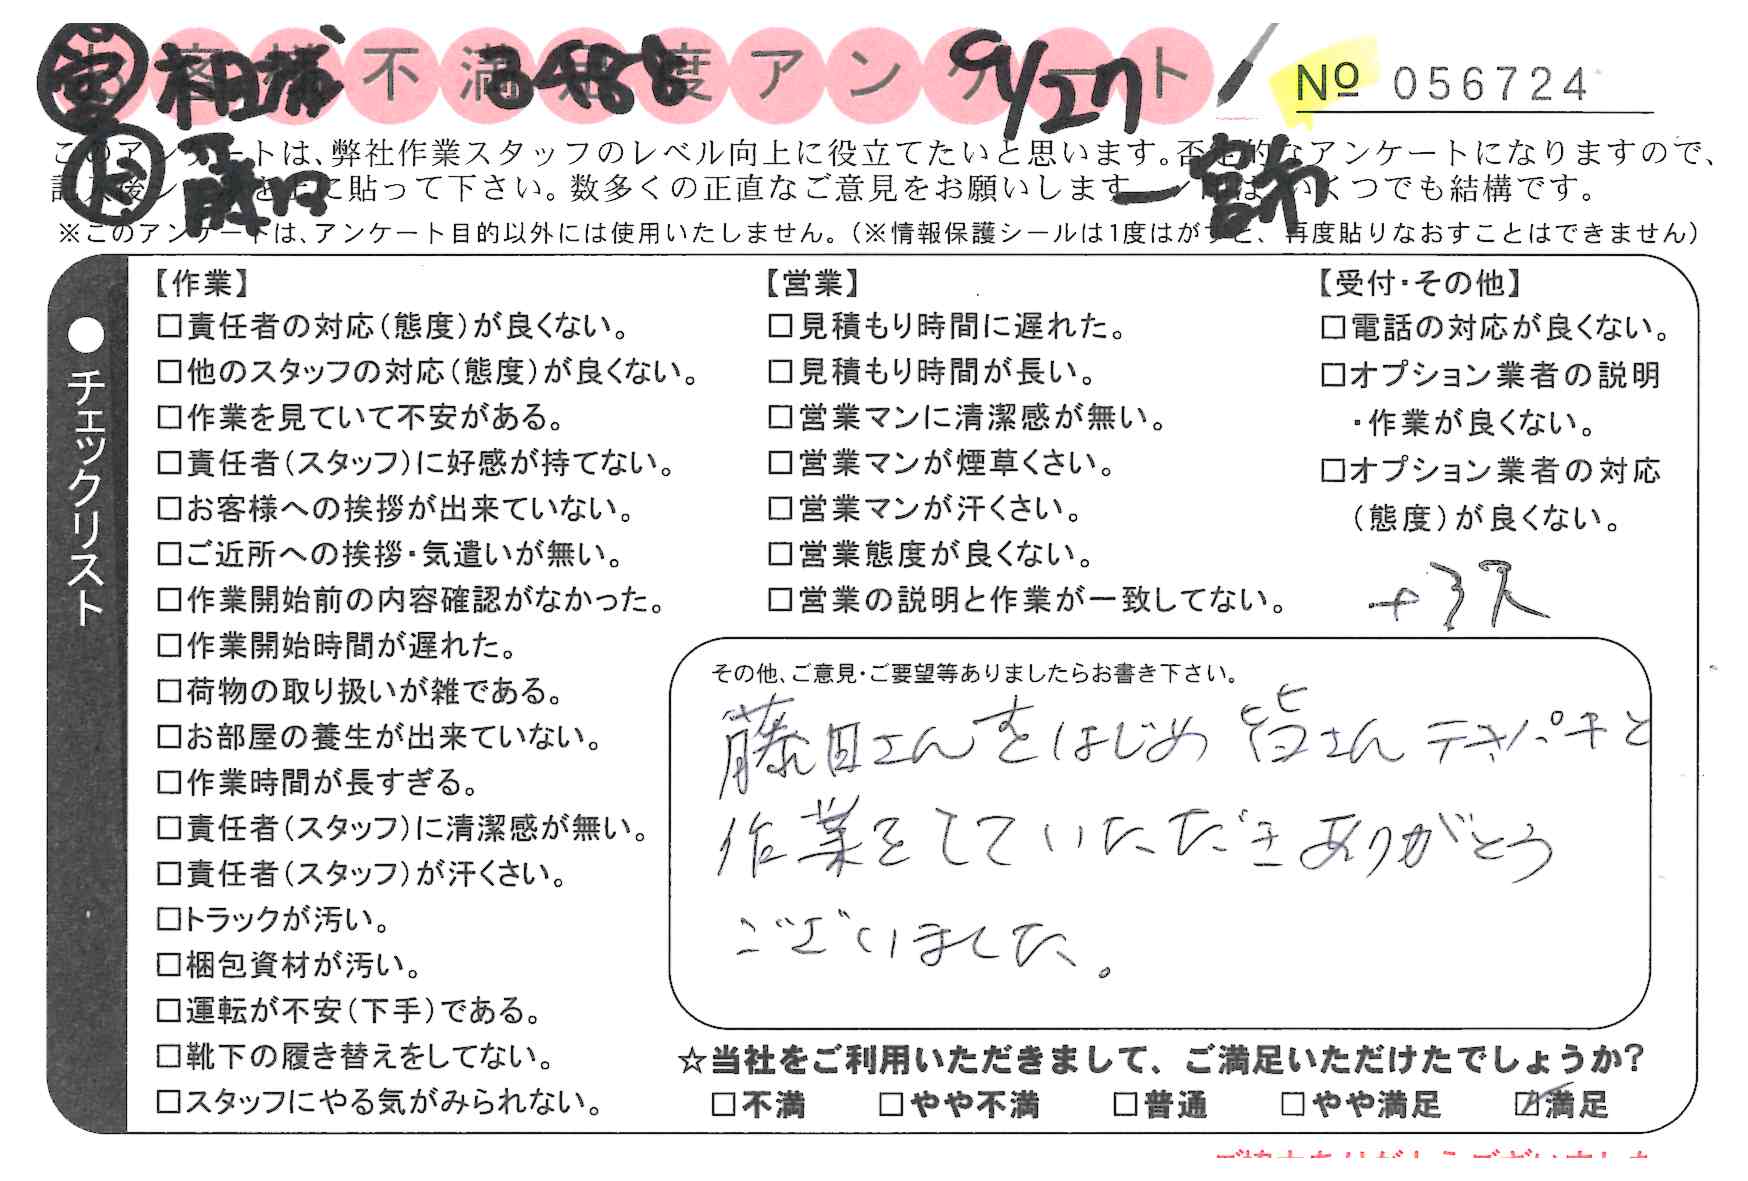 お客様不満足度アンケート
実 相浦 3488 9/27
No 056724
大 藤田 一宮市
このアンケートは、弊社作業スタッフのレベル向上に役立てたいと思います。否定的なアンケートになりますので、
に貼って下さい。数多くの正直なご意見をお願いします いくつでも結構です。
※このアンケートは、アンケート目的以外には使用いたしません。(※情報保護シールは1度はがすと、再度貼りなおすことはできません)
●チェックリスト
【作業】
□責任者の対応(態度)が良くない。
□他のスタッフの対応(態度)が良くない。
□作業を見ていて不安がある。
□責任者(スタッフ)に好感が持てない。
□お客様への挨拶が出来ていない。
□ご近所への挨拶・気遣いが無い。
□作業開始前の内容確認がなかった。
□作業開始時間が遅れた。
□荷物の取り扱いが雑である。
□お部屋の養生が出来ていない。
□作業時間が長すぎる。
□責任者(スタッフ)に清潔感が無い。
□責任者(スタッフ)が汗くさい。
□トラックが汚い。
□梱包資材が汚い。
□運転が不安(下手)である。
□靴下の履き替えをしてない。
□スタッフにやる気がみられない。
【営業】
□見積もり時間に遅れた。
□見積もり時間が長い。
□営業マンに清潔感が無い。
□営業マンが煙草くさい。
□営業マンが汗くさい。
□営業態度が良くない。
□営業の説明と作業が一致してない。
【受付・その他】
□電話の対応が良くない。
□オプション業者の説明
・作業が良くない。
□オプション業者の対応
(態度)が良くない。
その他、ご意見・ご要望等ありましたらお書き下さい。
藤田さんをはじめ 皆さん テキパキと
作業をしていただき ありがとう
ございました。
☆当社をご利用いただきまして、ご満足いただけたでしょうか?
□不満 □やや不満 □普通 □やや満足 ☑満足